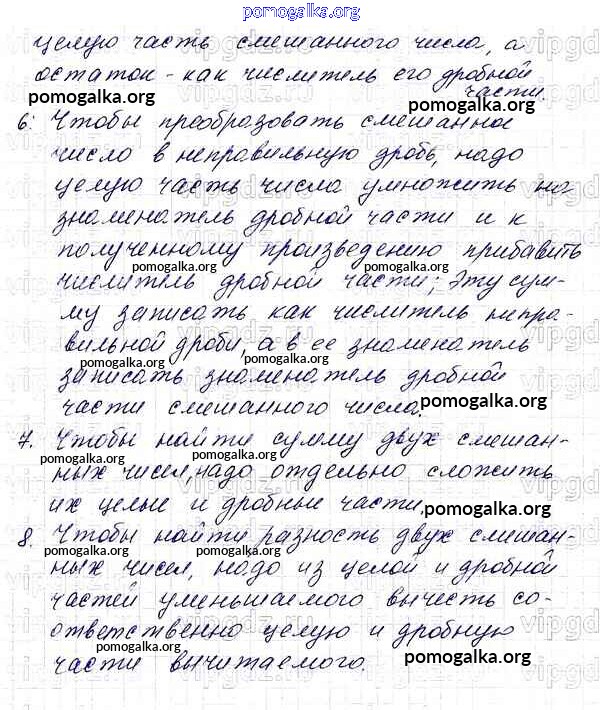 pomogalka.org
целую часть смешанного числа, а
остаток - как числитель его дробной
части.
pomogalka.org pomogalka.org
6. Чтобы преобразовать смешанное
число в неправильную дробь, надо
целую часть числа умножить на
знаменатель дробной части и к
полученному произведению прибавить
pomogalka.org pomogalka.org
числитель дробной части; Эту сум-
му записать как числитель непра-
вильной дроби, а в ее знаменатель
pomogalka.org pomogalka.org
записать знаменатель дробной
части смешанного числа.
pomogalka.org
7. Чтобы найти сумму двух смешан-
pomogalka.org pomogalka.org
ных чисел, надо отдельно сложить
их целые и дробные части.
pomogalka.org
8. Чтобы найти разность двух смешан-
pomogalka.org pomogalka.org
ных чисел, надо из целой и дробной
частей уменьшаемого вычесть со-
ответственно целую и дробную
части вычитаемого.
pomogalka.org